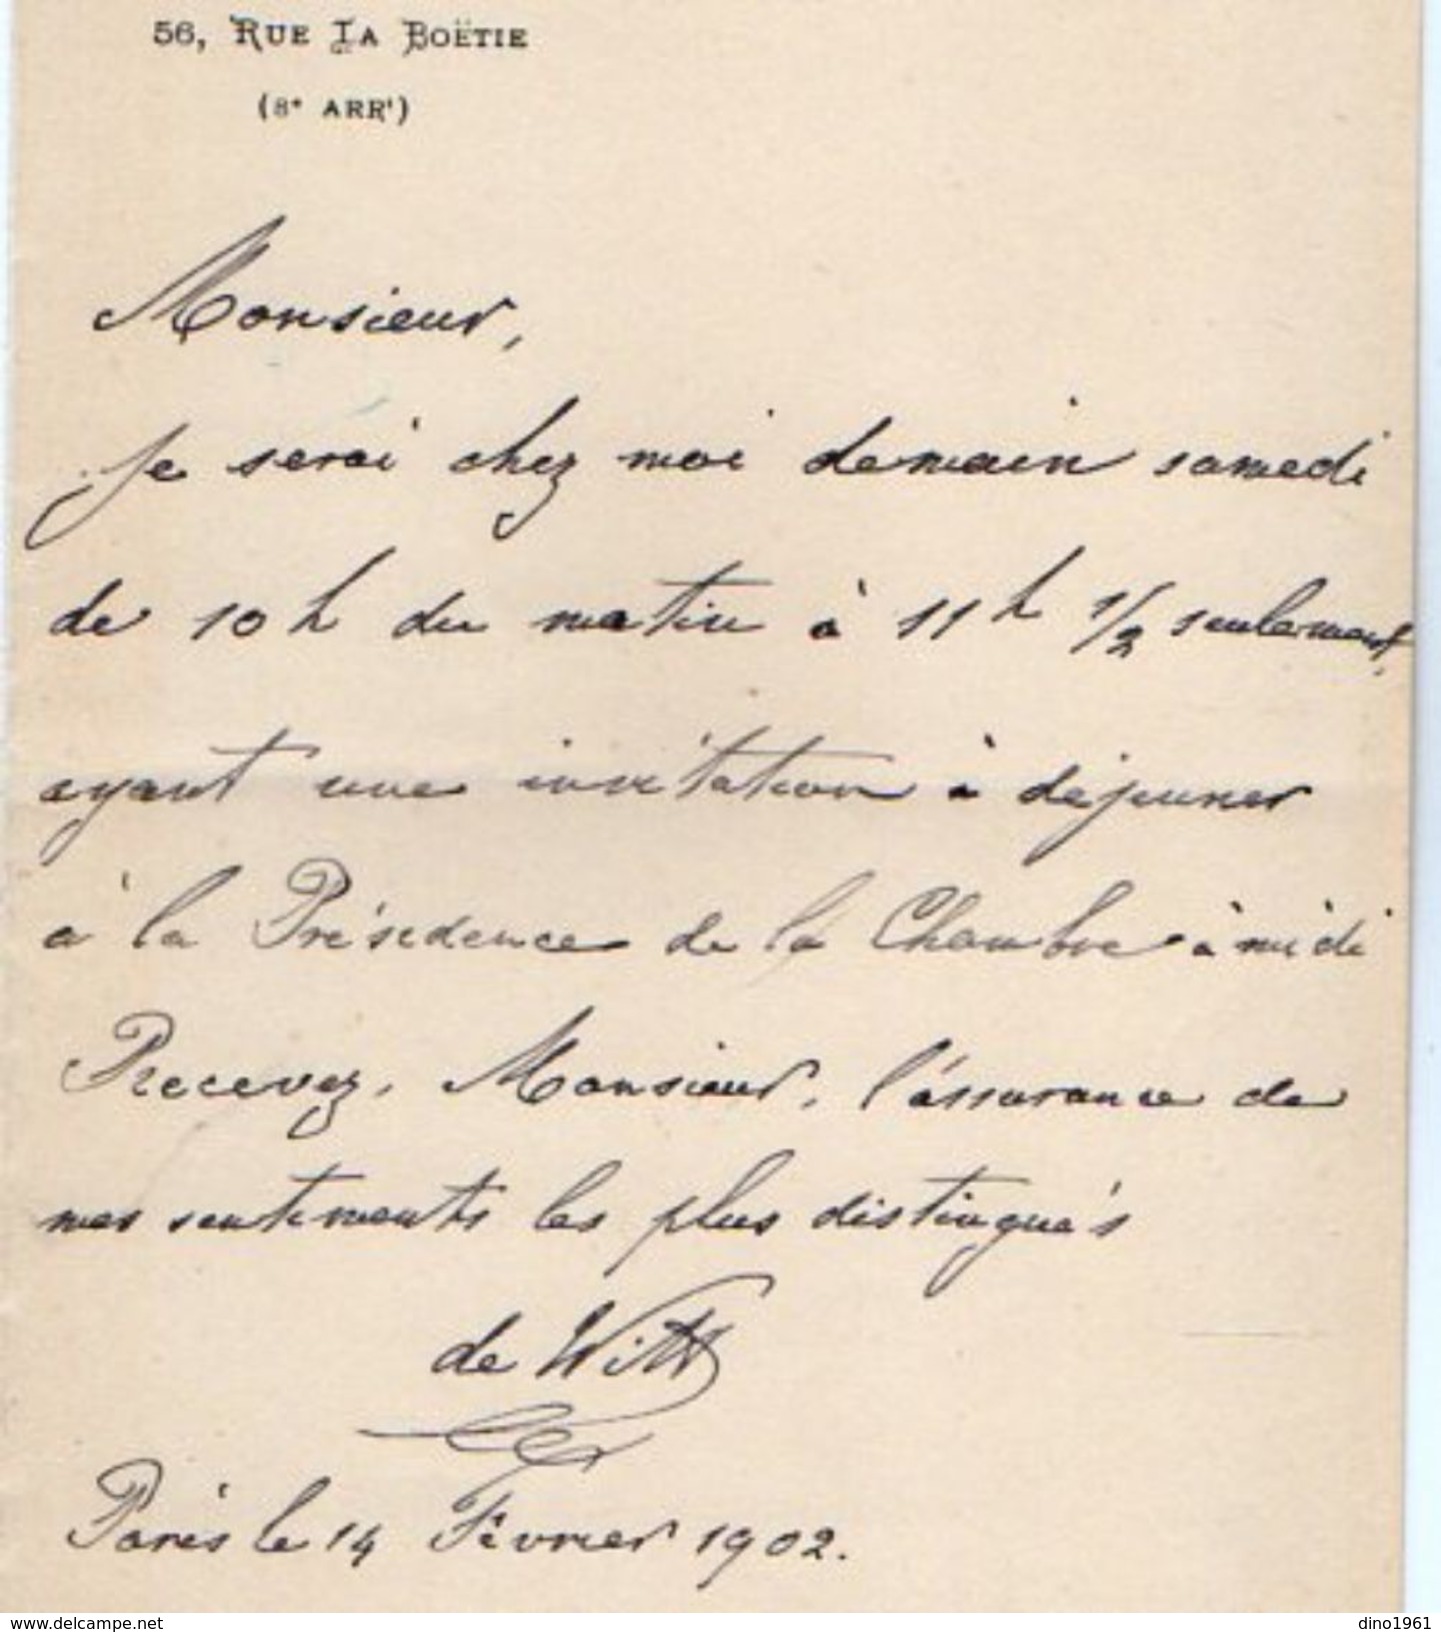 56, RUE LA BOËTIE
(8e ARRt)
Monsieur,
Je serai chez moi demain samedi
de 10 h du matin à 11 h 1/2 seulement,
ayant une invitation à déjeuner
à la Présidence de la Chambre à midi
Recevez, Monsieur, l'assurance de
mes sentiments les plus distingués
de Witt
Paris le 14 Février 1902.
www.delcampe.net
dino1961